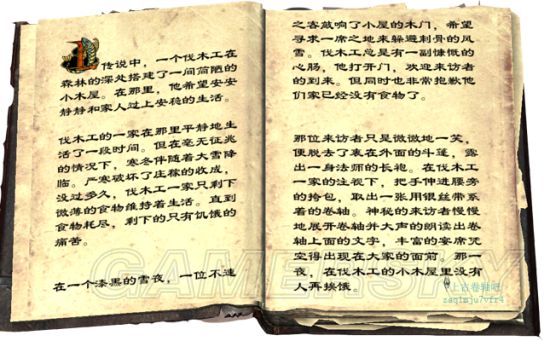 传说中，一个伐木工在
森林的深处搭建了一间简陋的
小木屋。在那里，他希望安安
静静和家人过上安稳的生活。
伐木工的一家在那里平静地生
活了一段时间。但在毫无征兆
的情况下，寒冬伴随着大雪降
临。严寒破坏了庄稼的收成，
没过多久，伐木工一家只剩下
微薄的食物维持着生活。直到
食物耗尽，剩下的只有饥饿的
痛苦。
在一个漆黑的雪夜，一位不速
之客敲响了小屋的木门，希望
寻求一席之地来躲避刺骨的风
雪。伐木工总是有一副慷慨的
心肠，他打开门，欢迎来访者
的到来。但同时也非常抱歉他
们家已经没有食物了。
那位来访者只是微微地一笑，
便脱去了裹在外面的斗蓬，露
出一身法师的长袍。在伐木工
一家的注视下，把手伸进腰旁
的挎包，取出一张用银丝带系
着的卷轴。神秘的来访者慢慢
地展开卷轴并大声的朗读出卷
轴上面的文字，丰富的宴席凭
空得出现在大家的面前。那一
夜，在伐木工的小木屋里没有
人再挨饿。
上古卷轴吧
zaq1mju7vfr4
GAMERSKY